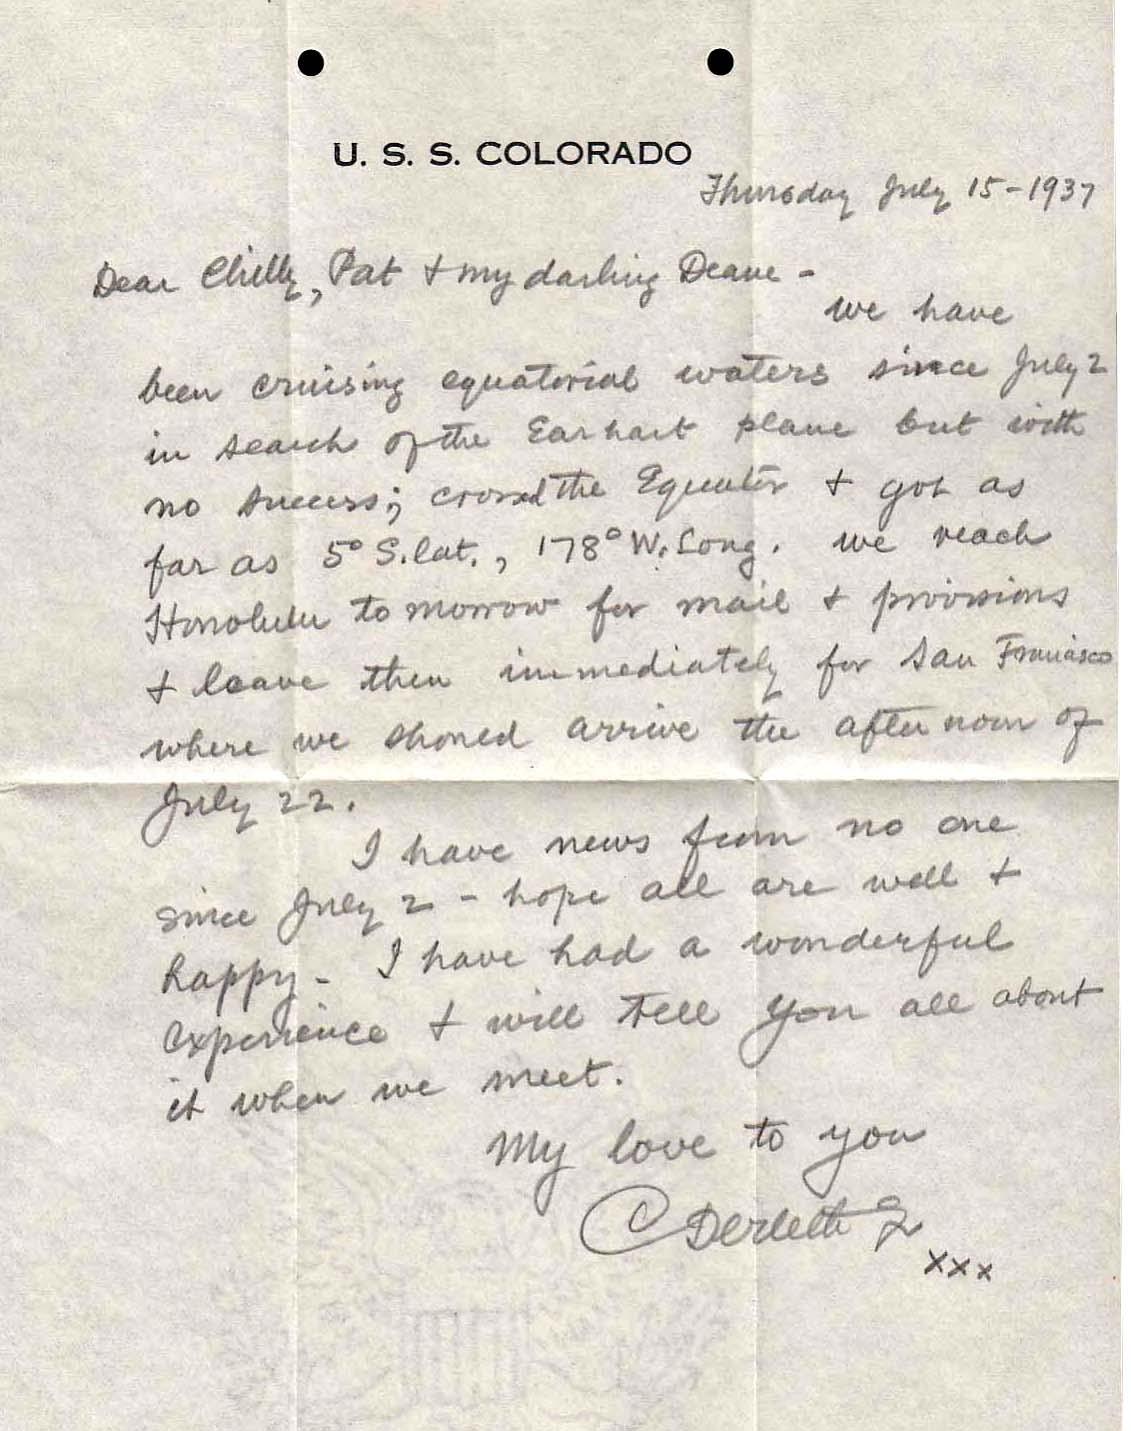 U. S. S. COLORADO
Thursday July 15-1937
Dear Chilly, Pat & my darling Deane -
we have
been cruising equatorial waters since July 2
in search of the Earhart plane but with
no success; crossed the Equator & got as
far as 5° S. lat., 178° W. Long. we reach
Honolulu tomorrow for mail & provisions
& leave then immediately for San Francisco
where we should arrive the afternoon of
July 22.
I have news from no one
since July 2 - hope all are well &
happy - I have had a wonderful
experience & will tell you all about
it when we meet.
My love to you
C Derleth Jr
xxx